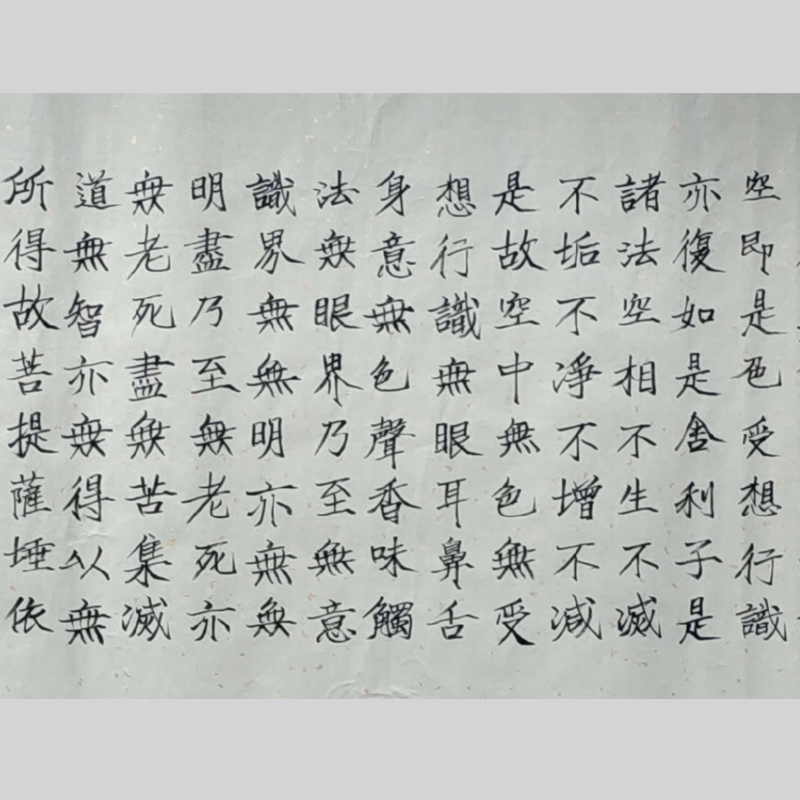 空即是色受想行識
亦復如是舍利子是
諸法空相不生不滅
不垢不淨不增不減
是故空中無色無受
想行識無眼耳鼻舌
身意無色聲香味觸
法無眼界乃至無意
識界無無明亦無無
明盡乃至無老死亦
無老死盡無苦集滅
道無智亦無得以無
所得故菩提薩埵依